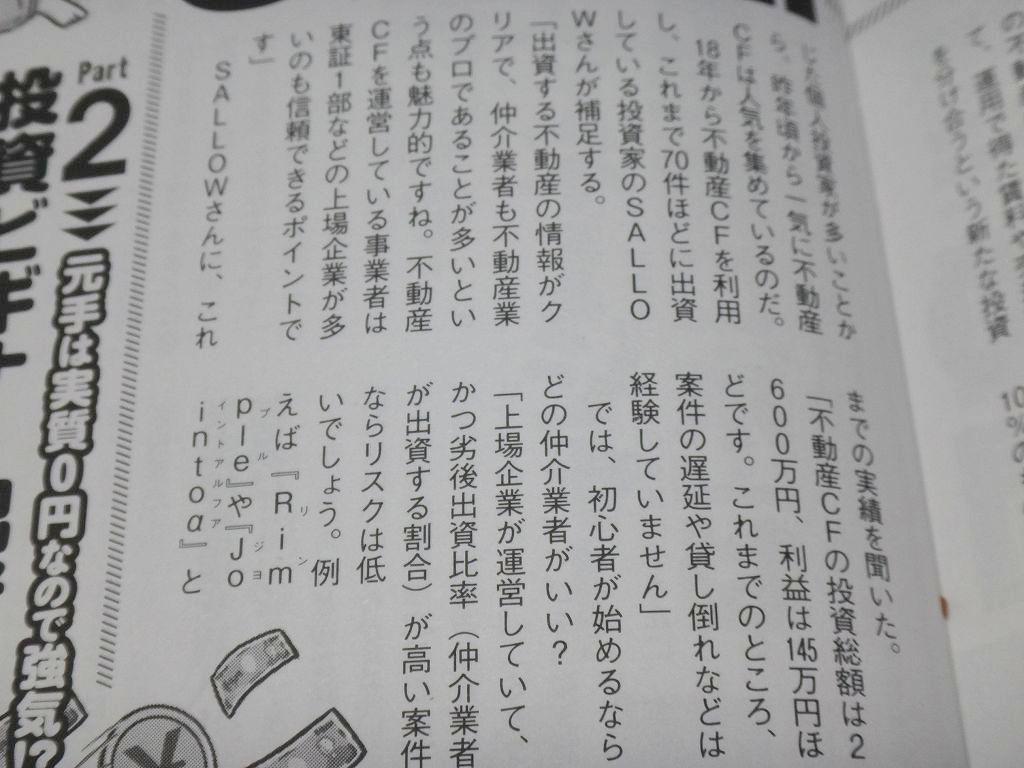 て、運用で得た賃料や
を分け合うという新たな投資
10%の
じた個人投資家が多いことか
ら、昨年頃から一気に不動産
CFは人気を集めているのだ。
18年から不動産CFを利用
し、これまで70件ほどに出資
している投資家のSALLO
Wさんが補足する。
「出資する不動産の情報がク
リアで、仲介業者も不動産業
のプロであることが多いとい
う点も魅力的ですね。不動産
CFを運営している事業者は
東証1部などの上場企業が多
いのも信頼できるポイントで
す」
SALLOWさんに、これ
までの実績を聞いた。
「不動産CFの投資総額は2
600万円、利益は145万円ほ
どです。これまでのところ、
案件の遅延や貸し倒れなどは
経験していません」
では、初心者が始めるなら
どの仲介業者がいい?
「上場企業が運営していて、
かつ劣後出資比率(仲介業者
が出資する割合)が高い案件
ならリスクは低
いでしょう。例
えば『Rim
リン
ple』や『Jo
プル ジョ
intoα』と
イントアルファ
Part
2
元手は実質0円なので強気!?
投資ビギナー
¥